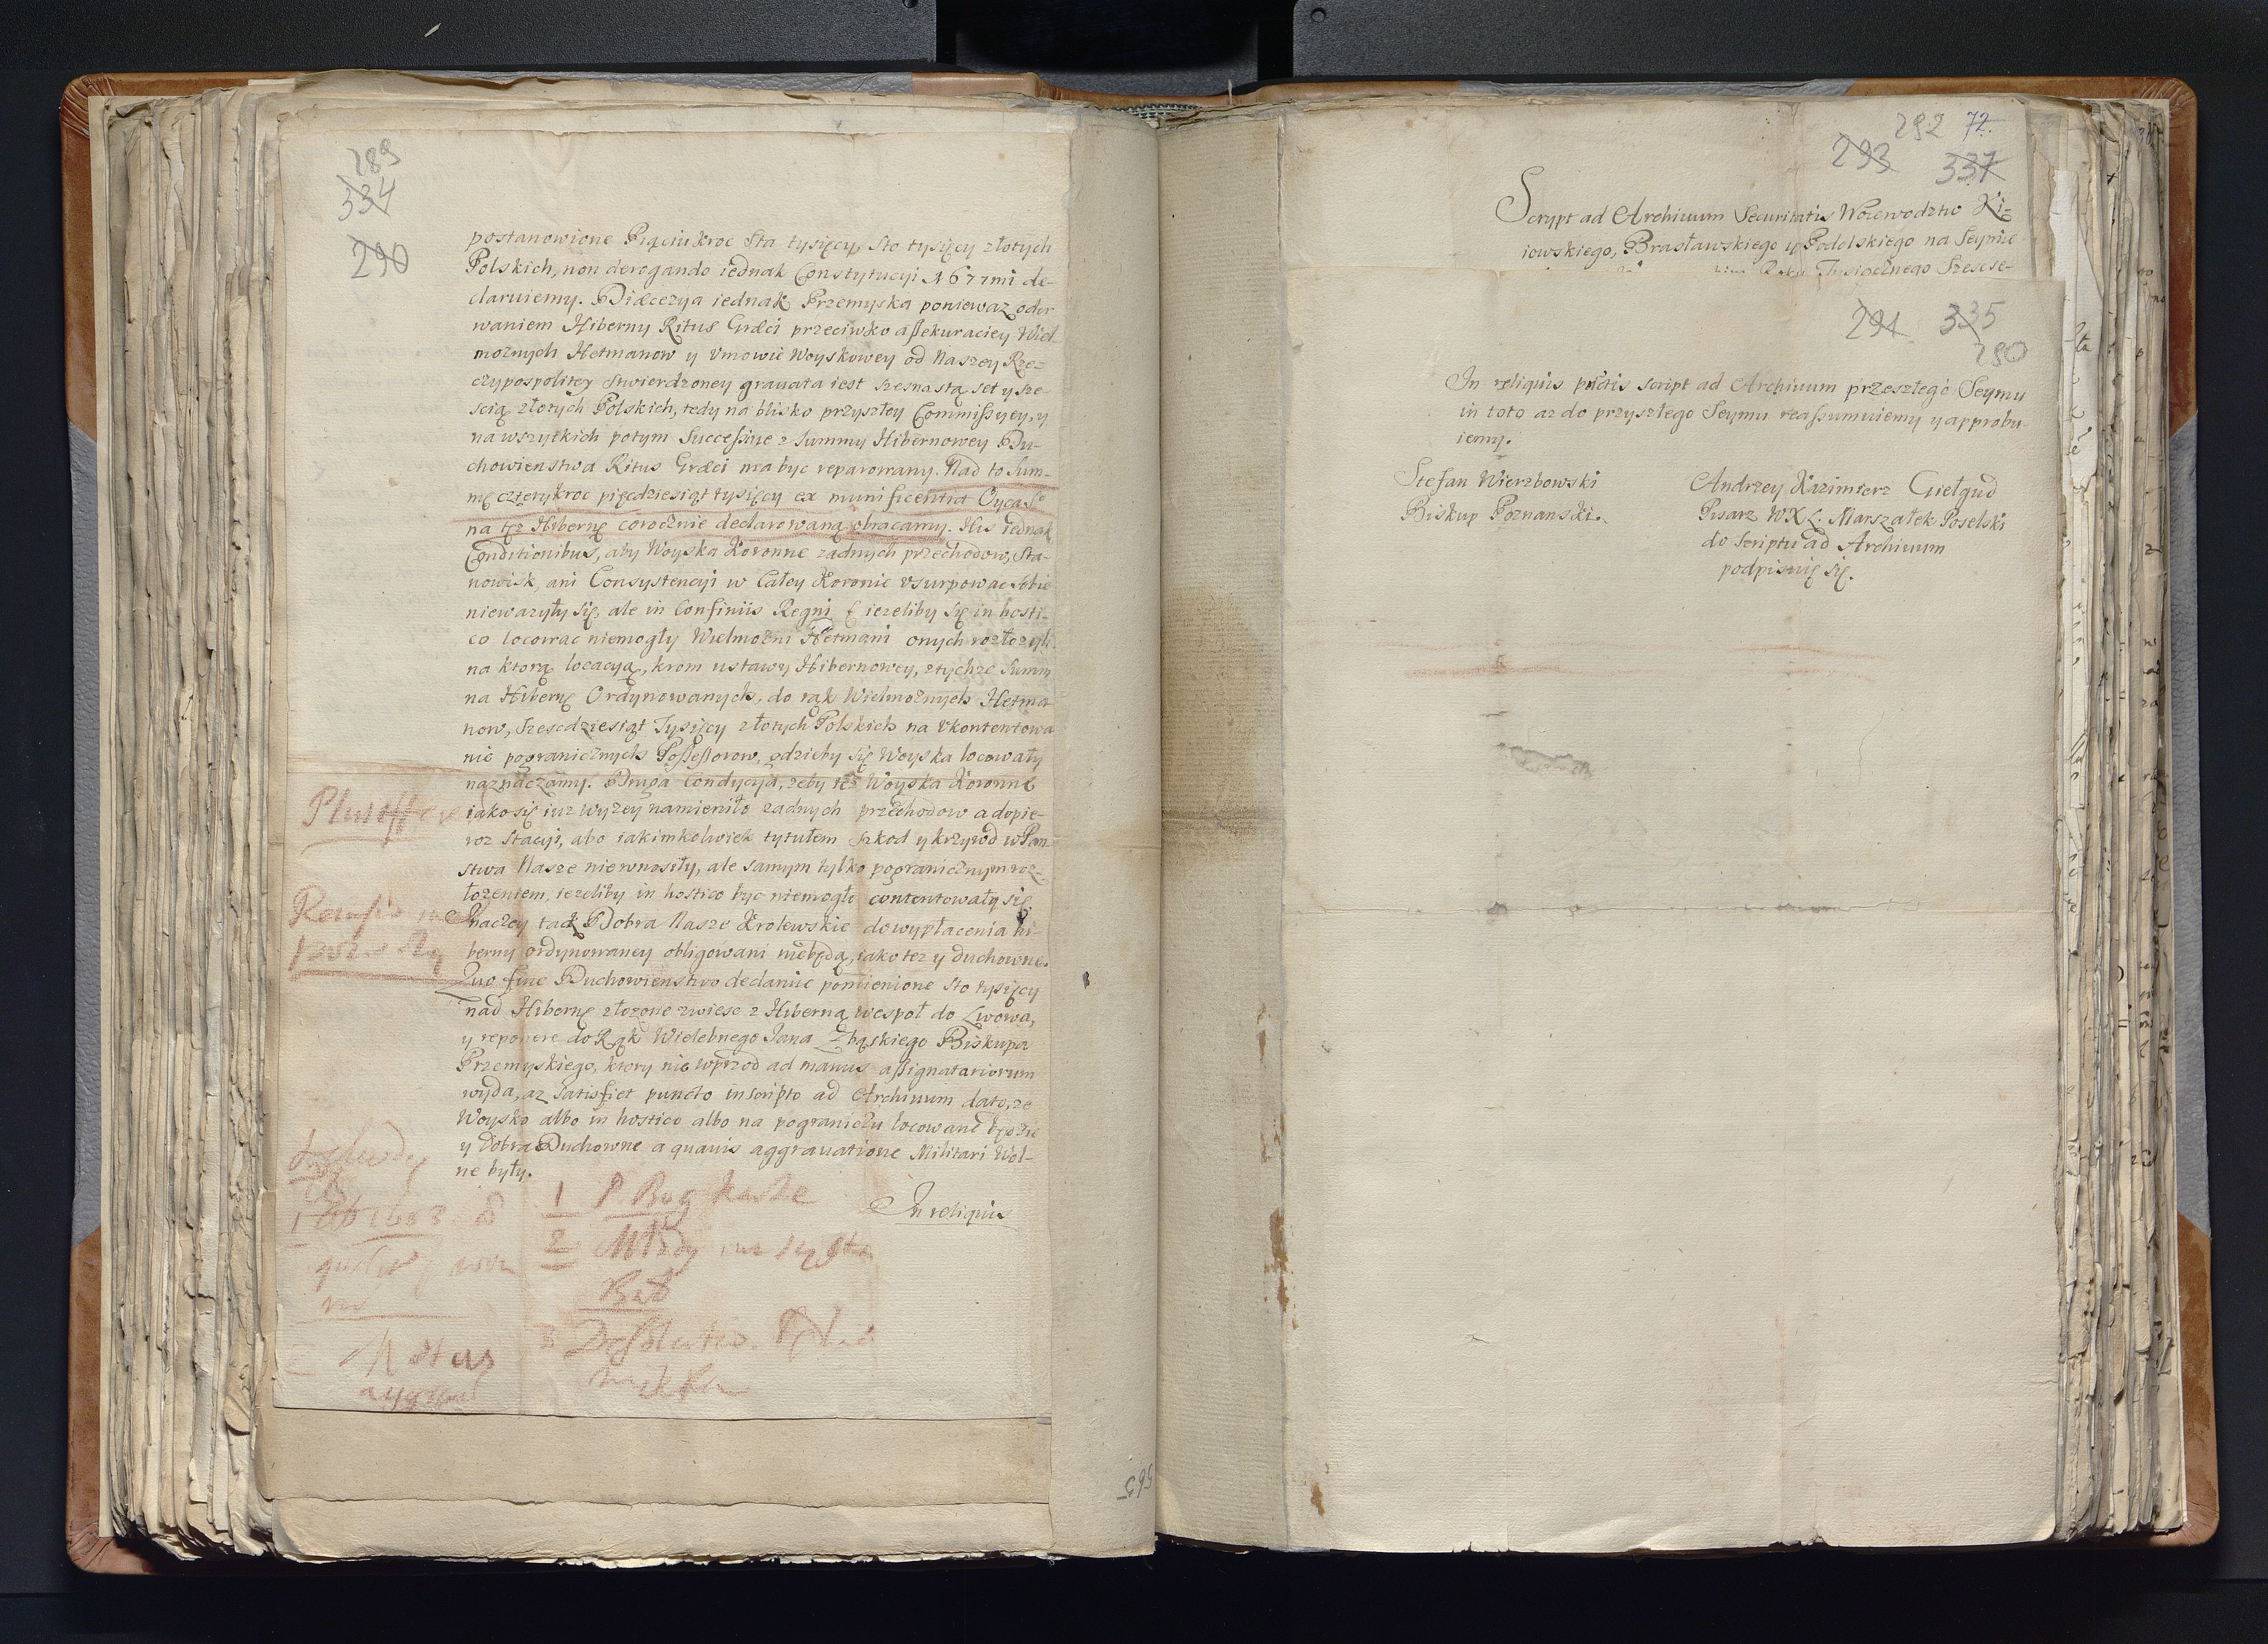 289
334
290
postanowione Pięciukroc Sta tysięcy, sto tysięcy złotych
Polskich, non derogando iednak Constytucyi 1677mi de-
claruiemy. Diæcezya iednak Przemyska poniewaz oder
waniem Hiberny Ritus Græci przeciwko assekuraciey Wiel
moznych Hetmanow y Vmowie Woyskowey od Naszey Rze-
czypospolitey stwierdzoney grauata iest szesnastą set y sze-
scią złotych Polskich, tedy na blisko przyszłey Commissyey, y
na wszytkich potym Successiue z Summy Hibernowey Du-
chowienstwa Ritus Græci ma byc reparowany. Nad to Sum-
mę czterykroc pięcdziesiąt tysięcy ex munificentia Oyca Sº
na tęz Hibernę corocznie declarowaną obracamy. His iednak
Conditionibus, aby Woyska Koronne zadnych przechodow, Sta-
nowisk, ani Consystencyi w Całey Koronie vsurpowac sobie
niewazyły się, ale in Confiniis Regni (iezeliby się in hosti-
co locowac niemogły Wielmozni Hetmani onych rozłozyli.
na ktorą locacyą, krom ustawy Hibernowey, ztychze Summ
na Hibernę Ordynowanych, do rąk Wielmoznych Hetma
now, Szescdziesiąt Tysięcy złotych Polskich na Vkontentowa
nie pogranicznych Possessorow, gdzieby się Woyska locowały
naznaczamy. Druga Condycya, zeby tez Woyska Koronne
iako się iuz wyzey namieniło zadnych przechodow a dopie-
roz Stacyi, abo iakimkolwiek tytułem szkod y krzywd w Pan
stwa Nasze niewnosiły, ale samym tylko pogranicznym roz-
łozeniem, iezeliby in hostico byc niemogło contentowały się.
Inaczey tak Dobra Nasze Krolewskie do wypłacenia hi-
berny ordynowaney obligowani niebędą, iako tez y duchowne.
Quo fine Duchowienstwo declaruie pomienione sto tysięcy
nad Hibernę złozone zwiesc z Hiberną wespoł do Lwowa,
y reponere do Rąk Wielebnego Jana Zbąskiego Biskupa
Przemyskiego, ktory nie wprzod ad manus assignatariorum
wyda, az satisfiet puncto in scripto ad Archiuum dato, ze
Woysko albo in hostico albo na pograniczu locowane będzie
y Dobra Duchowne a quauis aggrauatione Militari Wol-
ne były.
In reliquis
1 P Bog
2
3
565
292 72.
293 337
Scrypt ad Archiuum Securitatis Woiewodztw Ki-
iowskiego, Brasławskiego y Podolskiego na Seymie
Roku Tysiącznego Szescse-
291 335
290
In reliquis script ad Archiuum przeszłego Seymu
in toto az do przyszłego Seymu reassumuiemy y approbu-
iemy.
Stefan Wierzbowski
Biskup Poznanski.
Andrzey Kazimierz Giełgud
Pisarz WXL. Marszałek Poselski
do Scriptu ad Archiuum
podpisuię się.